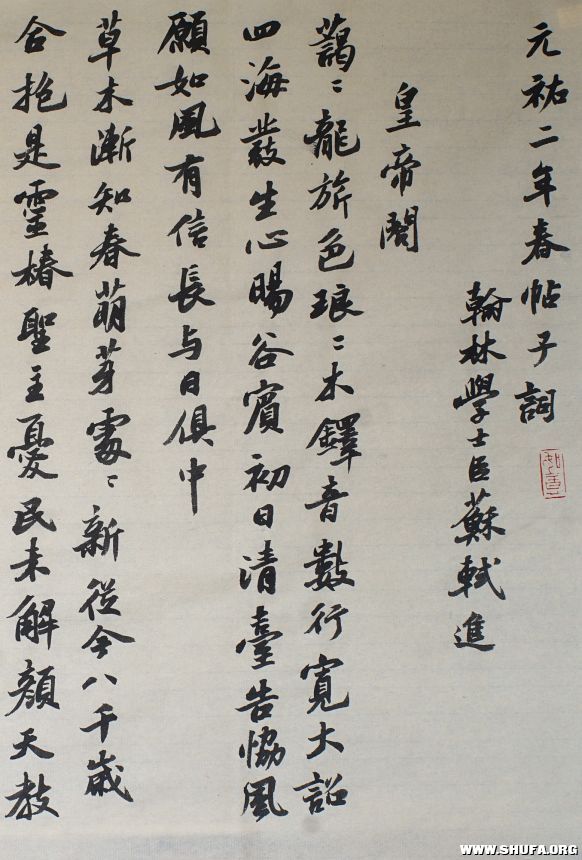 元祐二年春帖子詞
翰林學士臣蘇軾進
皇帝閣
藹〻龍旂色琅〻木鐸音數行寬大詔
四海發生心暘谷賓初日清臺告協風
願如風有信長与日俱中
草木漸知春萌芽處〻新從今八千歲
合抱是靈椿聖主憂民未解顏天教
WWW.SHUFA.ORG